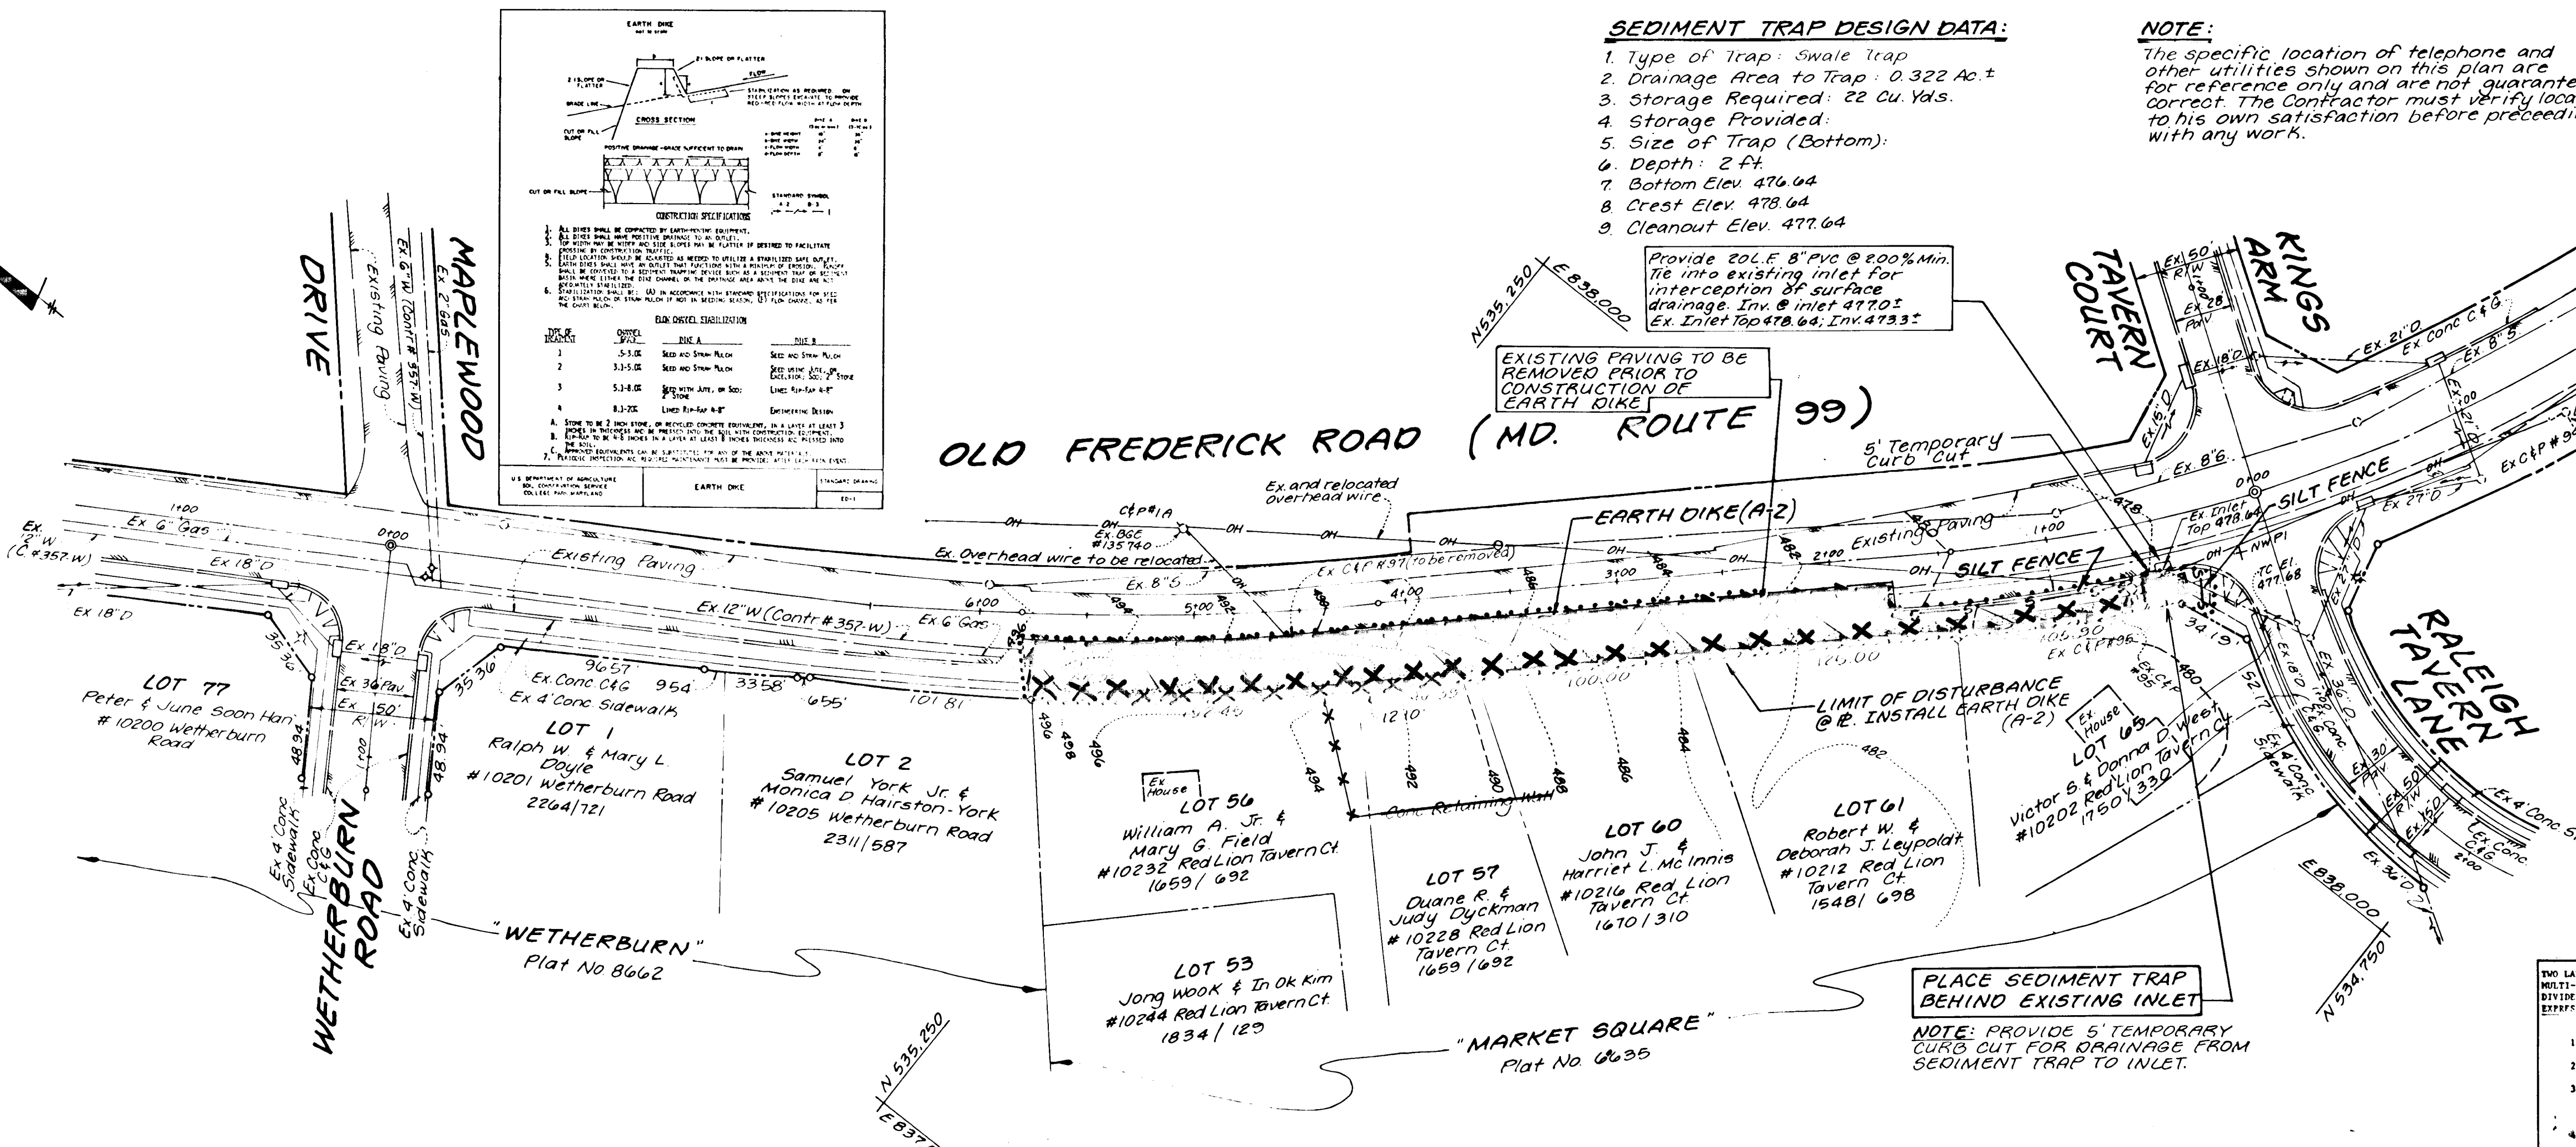 EARTH DIKE
not to scale
2:1 SLOPE OR FLATTER
2:1 SLOPE OR
FLATTER
FLOW
GRADE LINE
STABILIZATION AS REQUIRED. ON
STEEP SLOPES EXCAVATE TO PROVIDE
REQUIRED FLOW WIDTH AT FLOW DEPTH
CROSS SECTION
CUT OR FILL
SLOPE
DIKE A
DIKE B
a-DIKE HEIGHT
b-DIKE WIDTH
c-FLOW WIDTH
d-FLOW DEPTH
POSITIVE DRAINAGE-GRADE SUFFICIENT TO DRAIN
CUT OR FILL SLOPE
STANDARD SYMBOL
A-2 B-3
CONSTRUCTION SPECIFICATIONS
1. ALL DIKES SHALL BE COMPACTED BY EARTH-MOVING EQUIPMENT.
2. ALL DIKES SHALL HAVE POSITIVE DRAINAGE TO AN OUTLET.
3. TOP WIDTH MAY BE WIDER AND SIDE SLOPES MAY BE FLATTER IF DESIRED TO FACILITATE
CROSSING BY CONSTRUCTION TRAFFIC.
4. FIELD LOCATION SHOULD BE ADJUSTED AS NEEDED TO UTILIZE A STABILIZED SAFE OUTLET.
5. EARTH DIKES SHALL HAVE AN OUTLET THAT FUNCTIONS WITH A MINIMUM OF EROSION. RUNOFF
SHALL BE CONVEYED TO A SEDIMENT TRAPPING DEVICE SUCH AS A SEDIMENT TRAP OR SEDIMENT
BASIN WHERE EITHER THE DIKE CHANNEL OR THE DRAINAGE AREA ABOVE THE DIKE ARE NOT
ADEQUATELY STABILIZED.
6. STABILIZATION SHALL BE: (A) IN ACCORDANCE WITH STANDARD SPECIFICATIONS FOR SEED
AND STRAW MULCH OR STRAW MULCH IF NOT IN SEEDING SEASON, (B) FLOW CHANNEL AS PER
THE CHART BELOW.
FLOW CHANNEL STABILIZATION
TYPE OF TREATMENT CHANNEL GRADE DIKE A DIKE B
1 .5-3.0% SEED AND STRAW MULCH SEED AND STRAW MULCH
2 3.1-5.0% SEED AND STRAW MULCH SEED USING JUTE, OR EXCELSIOR; SOD; 2" STONE
3 5.1-8.0% SEED WITH JUTE, OR SOD; 2" STONE LINED RIP-RAP 4-8"
4 8.1-20% LINED RIP-RAP 4-8" ENGINEERING DESIGN
A. STONE TO BE 2 INCH STONE, OR RECYCLED CONCRETE EQUIVALENT, IN A LAYER AT LEAST 3
INCHES IN THICKNESS AND BE PRESSED INTO THE SOIL WITH CONSTRUCTION EQUIPMENT.
B. RIP-RAP TO BE 4-8 INCHES IN A LAYER AT LEAST 8 INCHES THICKNESS AND PRESSED INTO
THE SOIL.
C. APPROVED EQUIVALENTS CAN BE SUBSTITUTED FOR ANY OF THE ABOVE MATERIALS.
7. PERIODIC INSPECTION AND REQUIRED MAINTENANCE MUST BE PROVIDED AFTER EACH RAIN EVENT.
U.S. DEPARTMENT OF AGRICULTURE
SOIL CONSERVATION SERVICE
COLLEGE PARK, MARYLAND
EARTH DIKE
STANDARD DRAWING
ED-1
SEDIMENT TRAP DESIGN DATA:
1. Type of Trap: Swale Trap
2. Drainage Area to Trap: 0.322 Ac.±
3. Storage Required: 22 Cu. Yds.
4. Storage Provided:
5. Size of Trap (Bottom):
6. Depth: 2 ft.
7. Bottom Elev. 476.64
8. Crest Elev. 478.64
9. Cleanout Elev. 477.64
NOTE:
The specific location of telephone and
other utilities shown on this plan are
for reference only and are not guarante
correct. The Contractor must verify loca
to his own satisfaction before preceedi
with any work.
Provide 20 L.F. 8" PVC @ 2.00% Min.
Tie into existing inlet for
interception of surface
drainage. Inv. @ inlet 477.0±
Ex. Inlet Top 478.64; Inv. 473.3±
N 535,250
E 838,000
EXISTING PAVING TO BE
REMOVED PRIOR TO
CONSTRUCTION OF
EARTH DIKE
OLD FREDERICK ROAD (MD. ROUTE 99)
MAPLEWOOD
DRIVE
Existing Paving
Ex. 6" W (Contr # 357-W)
Ex. 2" Gas
TAVERN
COURT
KINGS
ARM
Ex. 50'
R/W
Ex 28'
Pav
Ex. 18" D
Ex. 15" D
Ex. 21" D
Ex Conc C&G
Ex. 8" S
Ex. 21" D
Ex C&P # 9
5' Temporary
Curb Cut
Ex. 8" S
478
SILT FENCE
Ex. 27" D
Ex. Inlet
Top 478.64
NWP1
TC El.
477.68
0+00
1+00
2+00
3+00
4+00
5+00
6+00
Ex. and relocated
overhead wire
C&P #1A
Ex. BGE
#135740
OH
EARTH DIKE (A-2)
Existing Paving
SILT FENCE
Ex. Overhead wire to be relocated
Ex. 8" S
Ex C&P #97 (to be removed)
1+00
Ex 6" Gas
Ex. 12" W
(C. #357-W)
0+00
Ex 18" D
Existing Paving
Ex 18" D
Ex. 12" W (Contr #357-W)
Ex 6" Gas
496
494
492
490
486
484
482
35.36
Ex 18" D
Ex 36 Pav.
Ex 50'
R/W
35.36
96.57
Ex. Conc. C&G
Ex 4' Conc Sidewalk
9.54
33.58
6.55'
101.81
121.0
100.00
125.00
105.90
Ex C&P #95
34.19
52.17'
48.94
48.94
1+00
LOT 77
Peter & June Soon Han
# 10200 Wetherburn
Road
LOT 1
Ralph W. & Mary L.
Doyle
# 10201 Wetherburn Road
2264/721
LOT 2
Samuel York Jr. &
Monica D. Hairston-York
# 10205 Wetherburn Road
2311/587
Ex
House
LOT 56
William A. Jr. &
Mary G. Field
#10232 Red Lion Tavern Ct.
1659/692
LOT 53
Jong Wook & In Ok Kim
#10244 Red Lion Tavern Ct.
1834/129
Conc. Retaining Wall
LOT 57
Duane R. &
Judy Dyckman
# 10228 Red Lion
Tavern Ct.
1659/692
LOT 60
John J. &
Harriet L. Mc Innis
#10216 Red Lion
Tavern Ct.
1670/310
LOT 61
Robert W. &
Deborah J. Leypoldt
#10212 Red Lion
Tavern Ct.
1548/698
LIMIT OF DISTURBANCE
@ ℄. INSTALL EARTH DIKE
(A-2)
Ex.
House
LOT 65
Victor S. & Donna D. West
#10202 Red Lion Tavern Ct.
1750/330
Ex C&P
#95
480
482
496
498
496
494
492
490
488
486
484
RALEIGH
TAVERN
LANE
Ex 18" D
Ex. 36" D
Ex 4' Conc
Sidewalk
Ex 30'
Pav
Ex 50'
R/W
Ex 15" D
Ex. 36" D
Ex Conc.
C&G
2+00
Ex 4' Conc.
WETHERBURN
ROAD
Ex 4' Conc
Sidewalk
Ex Conc
C&G
Ex 4' Conc.
Sidewalk
"WETHERBURN"
Plat No. 8662
"MARKET SQUARE"
Plat No. 6635
PLACE SEDIMENT TRAP
BEHIND EXISTING INLET
NOTE: PROVIDE 5' TEMPORARY
CURB CUT FOR DRAINAGE FROM
SEDIMENT TRAP TO INLET.
E 838,000
N 534,750
N 535,250
E 837,
TWO LA
MULTI-
DIVIDE
EXPRES
1
2
3